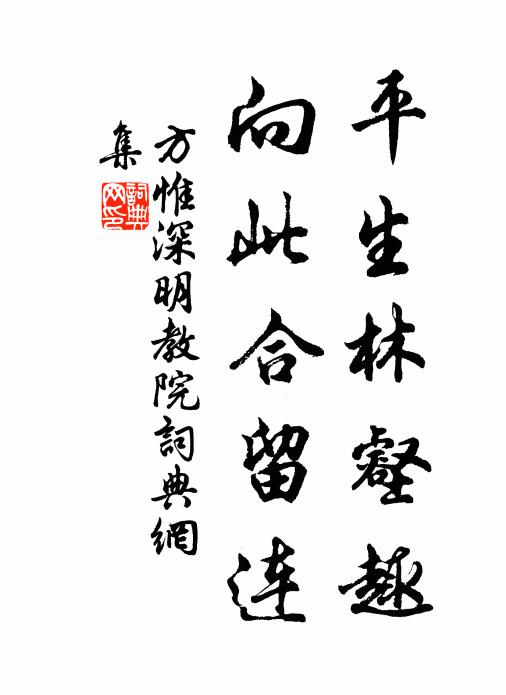 平生林壑趣
向此合留連
方惟深明教院詞典網
集
詞典
网印